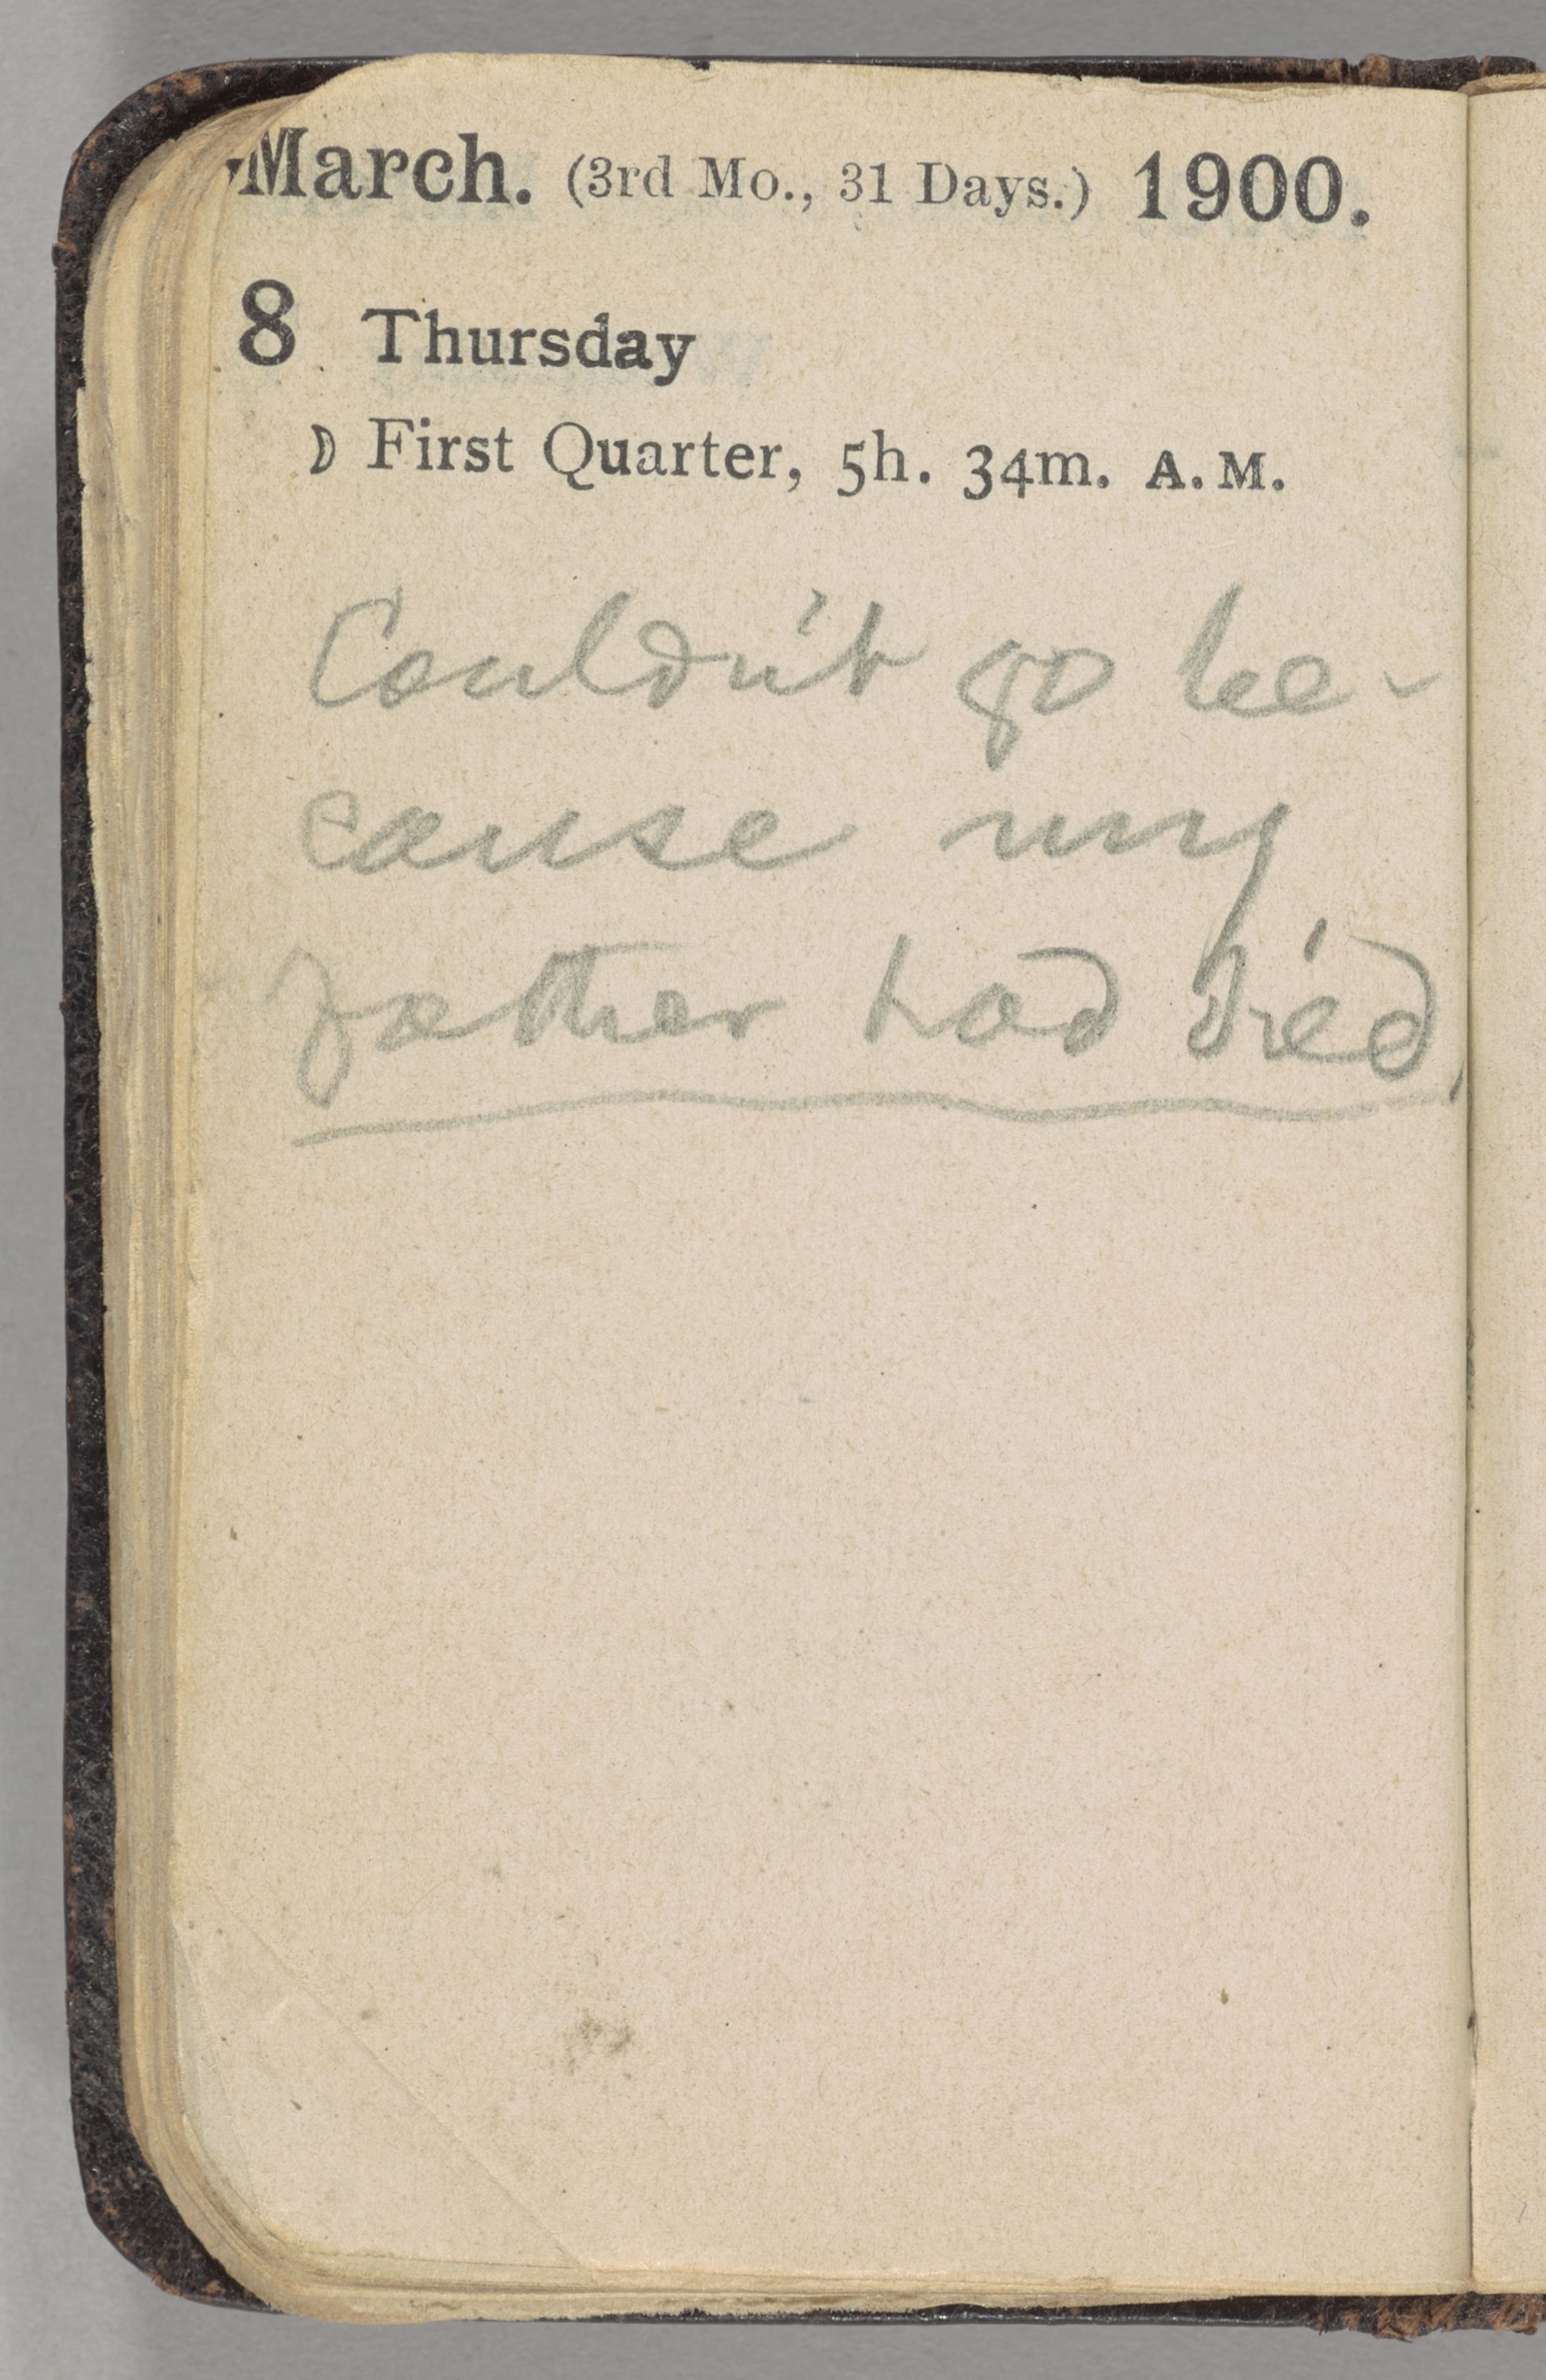 March. (3rd Mo., 31 Days.) 1900.
8 Thursday
☽ First Quarter, 5h. 34m. A.M.
Couldn't go be-
cause my
father had died.